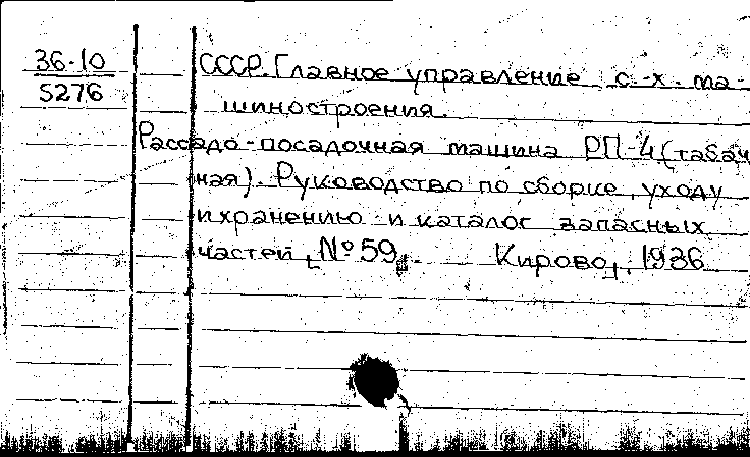 36-10
5276
СССР. Главное управление с.-х. ма-
шиностроения.
Рассадо-посадочная машина РП-4 (табач
ная). Руководство по сборке, уходу
и хранению и каталог запасных
частей, №59. Кирово, 1936